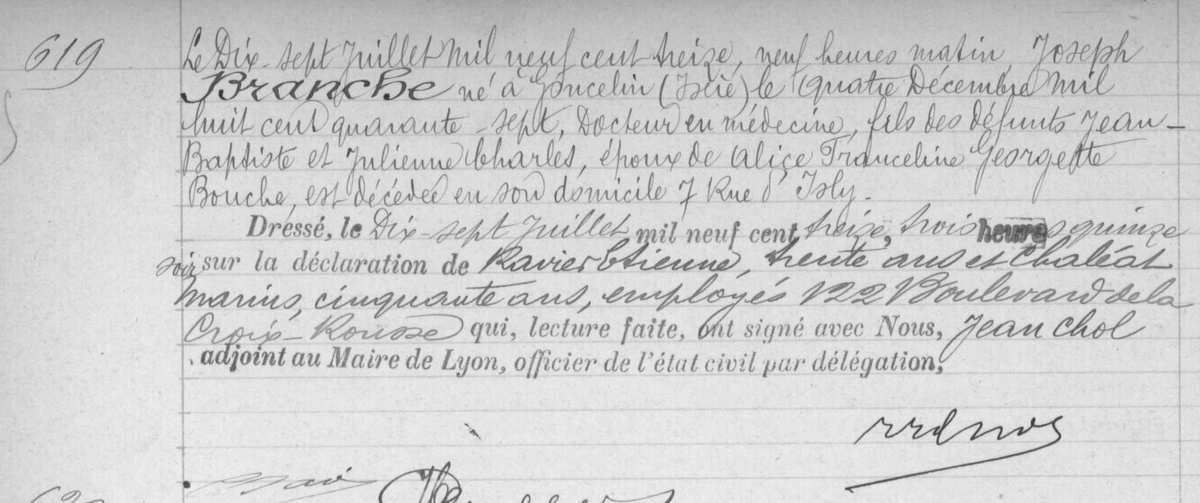 619
Le Dix-sept Juillet mil neuf cent treize, neuf heures matin, Joseph
Branche né à Goncelin (Isère) le Quatre Décembre mil
huit cent quarante-sept, Docteur en médecine, fils des défunts Jean-
Baptiste et Julienne Charles, époux de Alice Franceline Georgette
Bouche, est décédée en son domicile 7 Rue d'Isly.
Dressé, le Dix-sept Juillet mil neuf cent treize, trois heures quinze
soir sur la déclaration de Ravier Etienne, trente ans et Chaléat
Marius, cinquante ans, employés 122 Boulevard de la
Croix-Rousse qui, lecture faite, ont signé avec Nous, Jean Chol
adjoint au Maire de Lyon, officier de l'état civil par délégation,